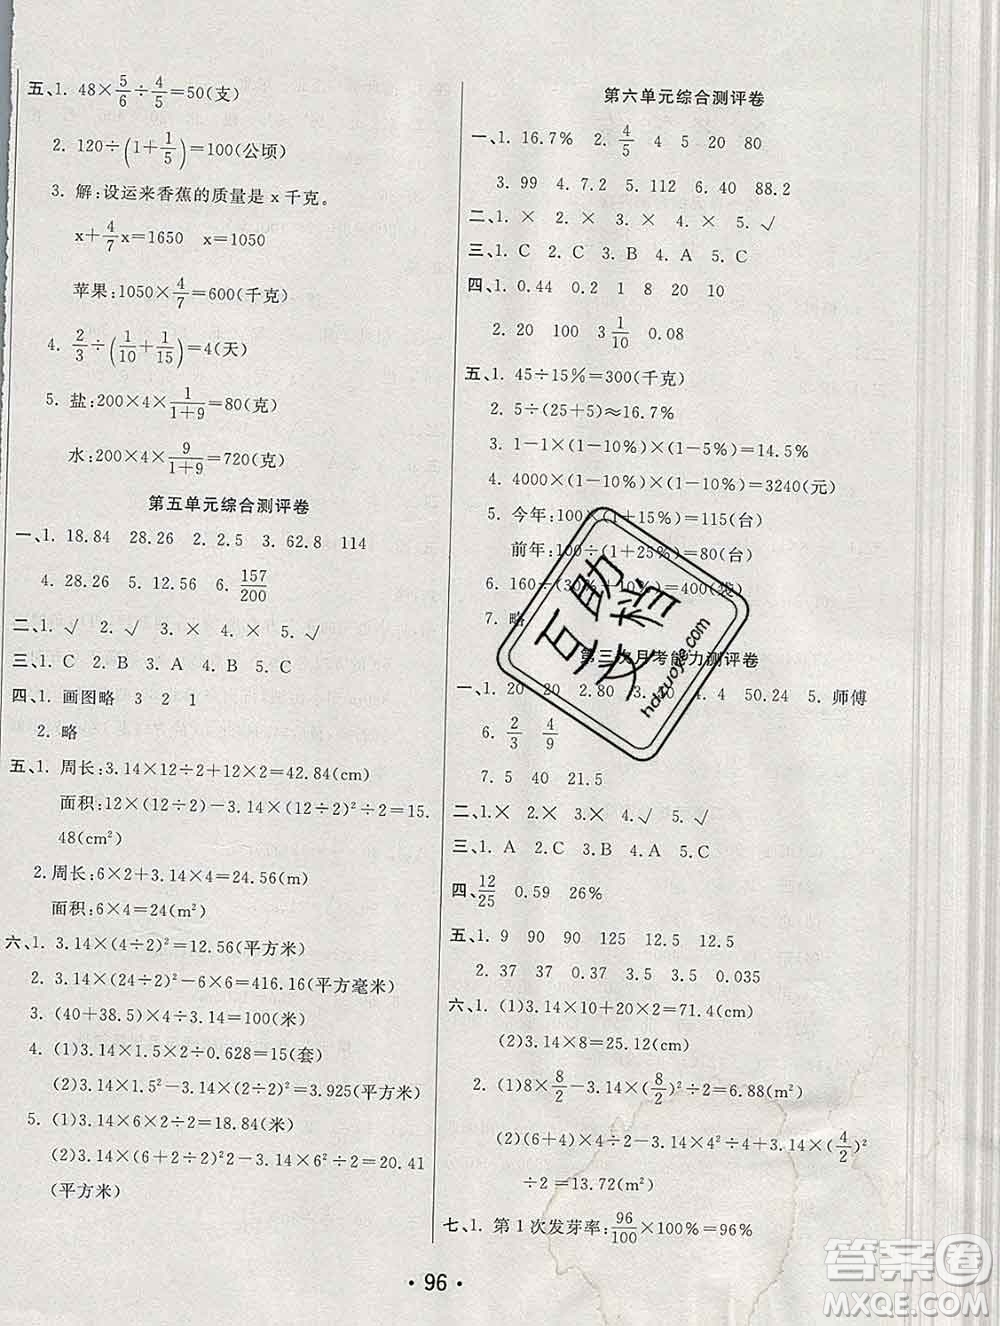 五、1. 48×5/6÷4/5=50(支)
2. 120÷(1+1/5)=100(公顷)
3. 解:设运来香蕉的质量是x千克。
x+4/7x=1650 x=1050
苹果:1050×4/7=600(千克)
4. 2/3÷(1/10+1/15)=4(天)
5. 盐:200×4×1/(1+9)=80(克)
水:200×4×9/(1+9)=720(克)
第五单元综合测评卷
一、1. 18.84 28.26 2. 2.5 3. 62.8 114
4. 28.26 5. 12.56 6. 157/200
二、1. √ 2. √ 3. × 4. × 5. √
三、1. C 2. B 3. A 4. C 5. B
四、1. 画图略 3 2 1
2. 略
五、1. 周长:3.14×12÷2+12×2=42.84(cm)
面积:12×(12÷2)-3.14×(12÷2)²÷2=15.
48(cm²)
2. 周长:3.14×4+6×2=24.56(m)
面积:6×4=24(m²)
六、1. 3.14×(4÷2)²=12.56(平方米)
2. 3.14×(24÷2)²-6×6=416.16(平方毫米)
3. (40+38.5)×4÷3.14=100(米)
4. (1)3.14×1.5×2÷0.628=15(套)
(2)3.14×1.5²-3.14×(2÷2)²=3.925(平方米)
5. (1)3.14×6×2÷2=18.84(米)
(2)3.14×(6+1)²÷2-3.14×6²÷2=20.41
(平方米)
第六单元综合测评卷
一、1. 16.7% 2. 4/5 4 5 20 80
3. 99 4. 7.2 5. 112 6. 40 88.2
二、1. × 2. × 3. × 4. × 5. √
三、1. C 2. C 3. B 4. A 5. C
四、1. 0.44 0.2 18 20 10
2. 20 100 3 1/10 0.08
五、1. 45÷15%=300(千克)
2. 5÷(25+5)≈16.7%
3. 1-1×(1-10%)×(1-5%)=14.5%
4. 4000×(1-10%)×(1-10%)=3240(元)
5. 今年:100×(1+15%)=115(台)
前年:100÷(1+25%)=80(台)
6. 160÷(30%+10%)=400(
7. 略
第三次月考能力测评卷
一、1. 20 20 2. 80 3. 4. 4 50.24 5. 师傅
6. 2/3 4/9
7. 5 40 21.5
二、1. × 2. × 3. × 4. √ 5. √
三、1. A 2. C 3. B 4. A 5. B
四、12/25 0.59 26%
五、1. 9 90 90 125 12.5 12.5
2. 37 37 0.35 3.5 3.5 0.035
六、1. (1)3.14×10+20×2=71.4(cm)
(2)3.14×8=25.12(cm)
2. (1)8×8/2-3.14×(8/2)²÷2=6.88(m²)
(2)(6+4)×4÷2+3.14×4²÷4-3.14×(4/2)²
÷2=13.72(m²)
七、1. 第1次发芽率:96/100×100%=96%
·96·
互助文档
hdzuoye.com
答案圈
MXQE.COM